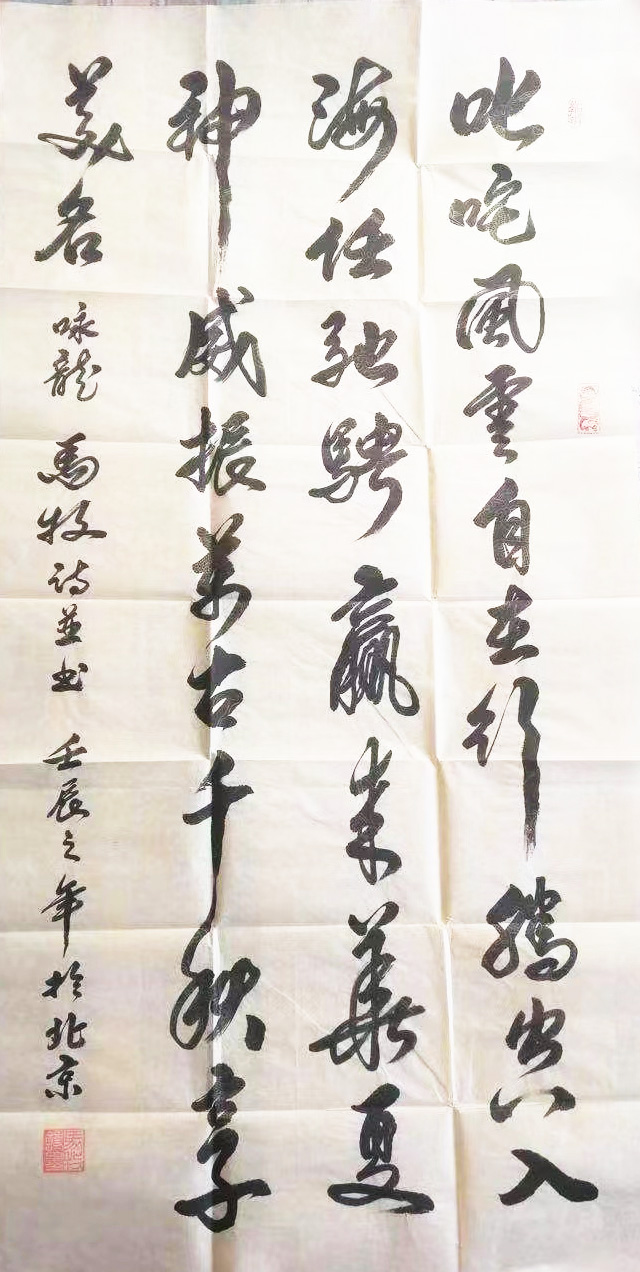 叱咤風雲自在行騰入
海任馳騁贏来華夏
神威振萬古千秋享
美名 咏龍 馬牧诗並书 壬辰之年於北京